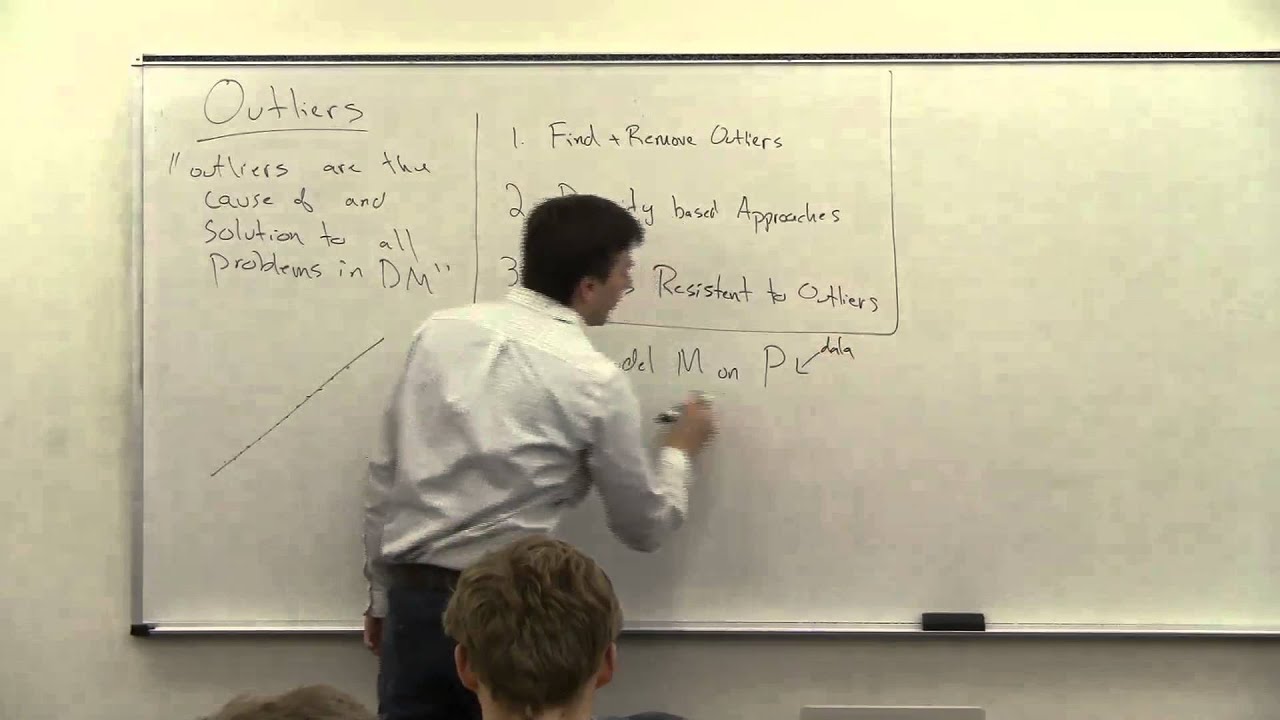 Outliers
"outliers are the
cause of and
solution to all
problems in DM"
1. Find + Remove Outliers
2 based Approaches
3 Resistent to Outliers
M on P
data